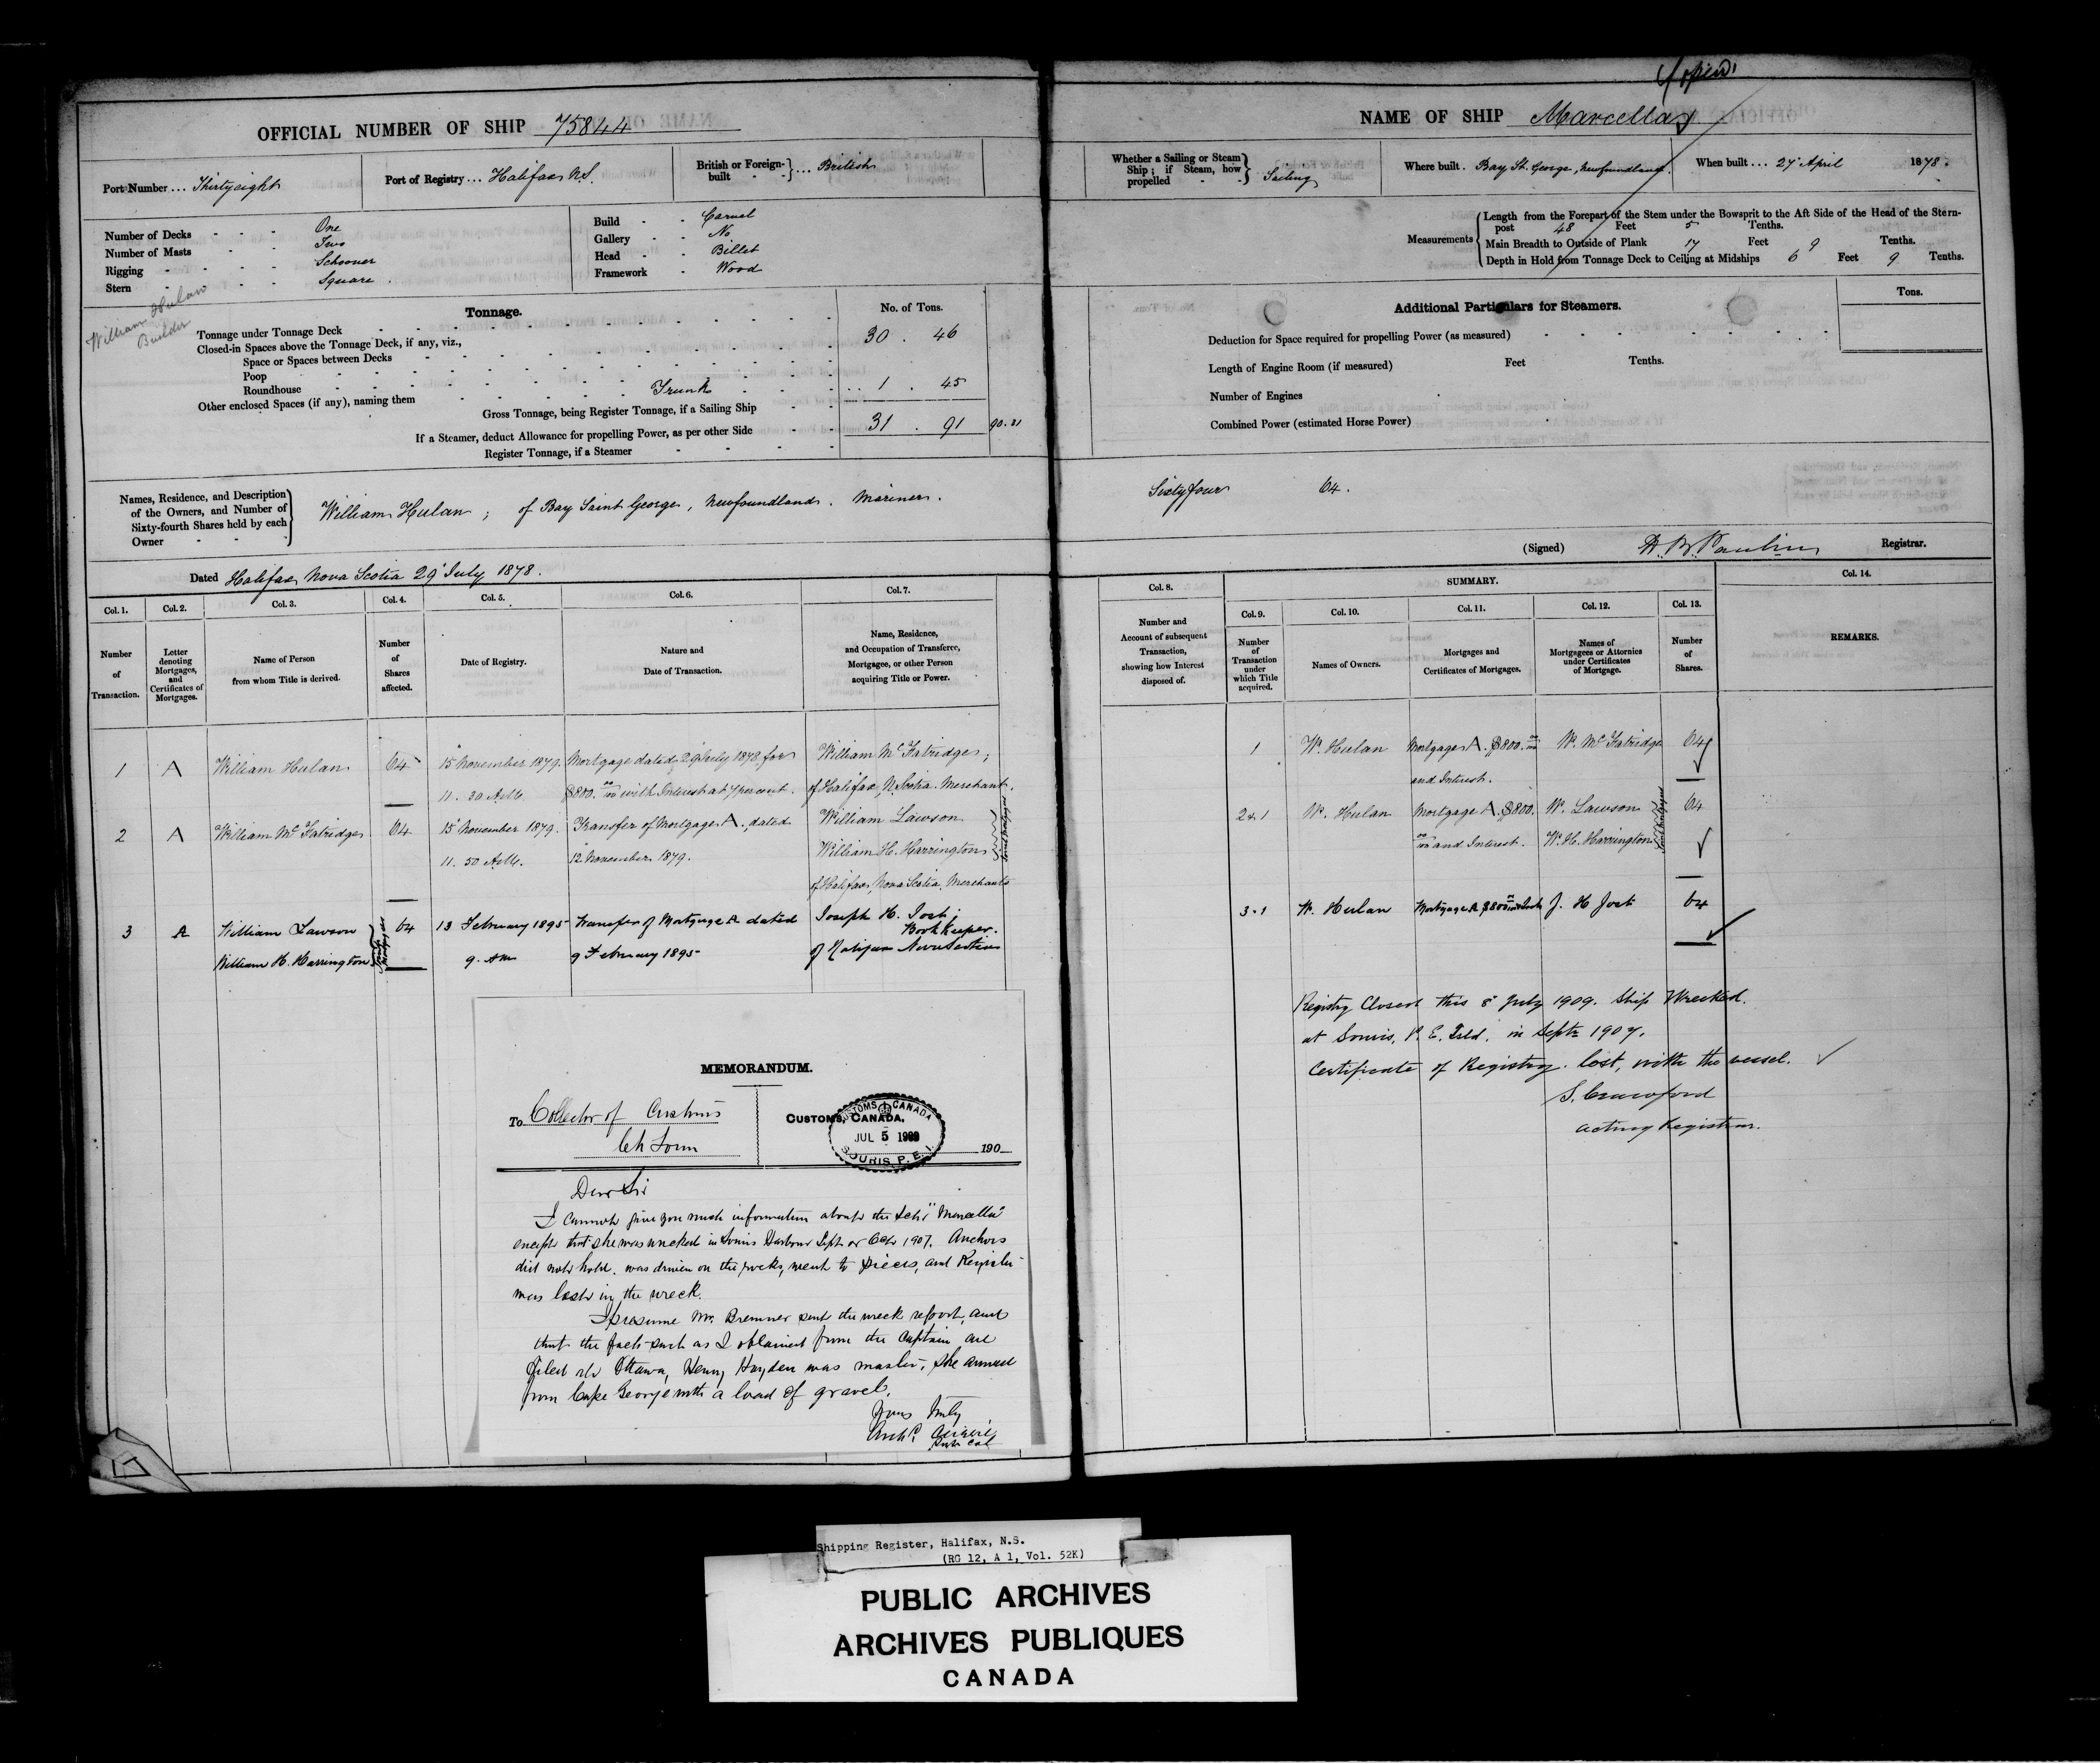 OFFICIAL NUMBER OF SHIP 75844
Port Number ... Thirtyeight
Port of Registry ... Halifax N.S.
British or Foreign-built ... British
Number of Decks One
Number of Masts Two
Rigging Schooner
Stern Square
Build Carvel
Gallery No
Head Billet
Framework Wood
William Hulan
Builder
Tonnage.
No. of Tons.
Tonnage under Tonnage Deck 30 . 46
Closed-in Spaces above the Tonnage Deck, if any, viz.,
Space or Spaces between Decks
Poop
Roundhouse
Other enclosed Spaces (if any), naming them Trunk 1 . 45
Gross Tonnage, being Register Tonnage, if a Sailing Ship 31 . 91 90.31
If a Steamer, deduct Allowance for propelling Power, as per other Side
Register Tonnage, if a Steamer
Names, Residence, and Description
of the Owners, and Number of
Sixty-fourth Shares held by each
Owner
William Hulan ; of Bay Saint George, Newfoundland. Mariner.
Dated Halifax Nova Scotia 29 July 1878.
Col. 1. Col. 2. Col. 3. Col. 4. Col. 5. Col. 6. Col. 7.
Number of Transaction.
Letter denoting Mortgages, and Certificates of Mortgages.
Name of Person from whom Title is derived.
Number of Shares affected.
Date of Registry.
Nature and Date of Transaction.
Name, Residence, and Occupation of Transferee, Mortgagee, or other Person acquiring Title or Power.
1 A William Hulan 64 15 November 1879. Mortgage dated 29 July 1878 for William McFatridge ;
11. 30 A.M. $800. 00/100 with Interest at 7 per cent. of Halifax, N. Scotia. Merchant.
2 A William McFatridge 64 15 November 1879. Transfer of Mortgage A. dated William Lawson
11. 50 A.M. 12 November 1879. William H. Harrington Joint Mortgagees
of Halifax, Nova Scotia. Merchants
3 A William Lawson 64 13 February 1895 Transfer of Mortgage A dated Joseph H. Jost ;
Book Keeper.
William H. Harrington Joint Mortgagees 9. AM 9 February 1895 of Halifax Nova Scotia
MEMORANDUM.
To Collector of Customs
Ch Town
CUSTOMS, CANADA,
190
CUSTOMS CANADA
JUL 5 1909
SOURIS P. E. I.
Dear Sir
I cannot give you much information about the Schr "Marcella"
except that she was wrecked in Souris Harbour Sept or Octr 1907. Anchors
did not hold. was driven on the rocks, went to pieces, and Register
was lost in the wreck.
I presume Mr. Bremner sent the wreck report, and
that the facts such as I obtained from the Captain are
filed at Ottawa, Henry Hayden was master, she arrived
from Cape George with a load of gravel.
Yours truly
Archd.
Sub Col
NAME OF SHIP Marcella
Whether a Sailing or Steam Ship ; if Steam, how propelled Sailing
Where built. Bay St. George, Newfoundland.
When built ... 27 April 1878.
Measurements
Length from the Forepart of the Stem under the Bowsprit to the Aft Side of the Head of the Stern-
post 48 Feet 5 Tenths.
Main Breadth to Outside of Plank 17 Feet 9 Tenths.
Depth in Hold from Tonnage Deck to Ceiling at Midships 6 Feet 9 Tenths.
Additional Particulars for Steamers.
Tons.
Deduction for Space required for propelling Power (as measured)
Length of Engine Room (if measured) Feet Tenths.
Number of Engines
Combined Power (estimated Horse Power)
Sixty four 64.
(Signed) Registrar.
Col. 8. SUMMARY. Col. 14.
Col. 9. Col. 10. Col. 11. Col. 12. Col. 13.
Number and Account of subsequent Transaction, showing how Interest disposed of.
Number of Transaction under which Title acquired.
Names of Owners.
Mortgages and Certificates of Mortgages.
Names of Mortgagees or Attornies under Certificates of Mortgage.
Number of Shares.
REMARKS.
1 W. Hulan Mortgage A. $800. 00/100 W. McFatridge 64
and Interest.
2.1 W. Hulan Mortgage A. $800. W. Lawson 64
00/100 and Interest. W. H. Harrington Joint Mortgagees
3.1 W. Hulan Mortgage A $800 J. H Jost 64
Registry Closed this 8 July 1909. Ship Wrecked.
at Souris, P. E. Isld. in Septr 1907.
Certificate of Registry lost, with the vessel.
S. Crawford
Acting Registrar.
Shipping Register, Halifax, N.S.
(RG 12, A 1, Vol. 52K)
PUBLIC ARCHIVES
ARCHIVES PUBLIQUES
CANADA